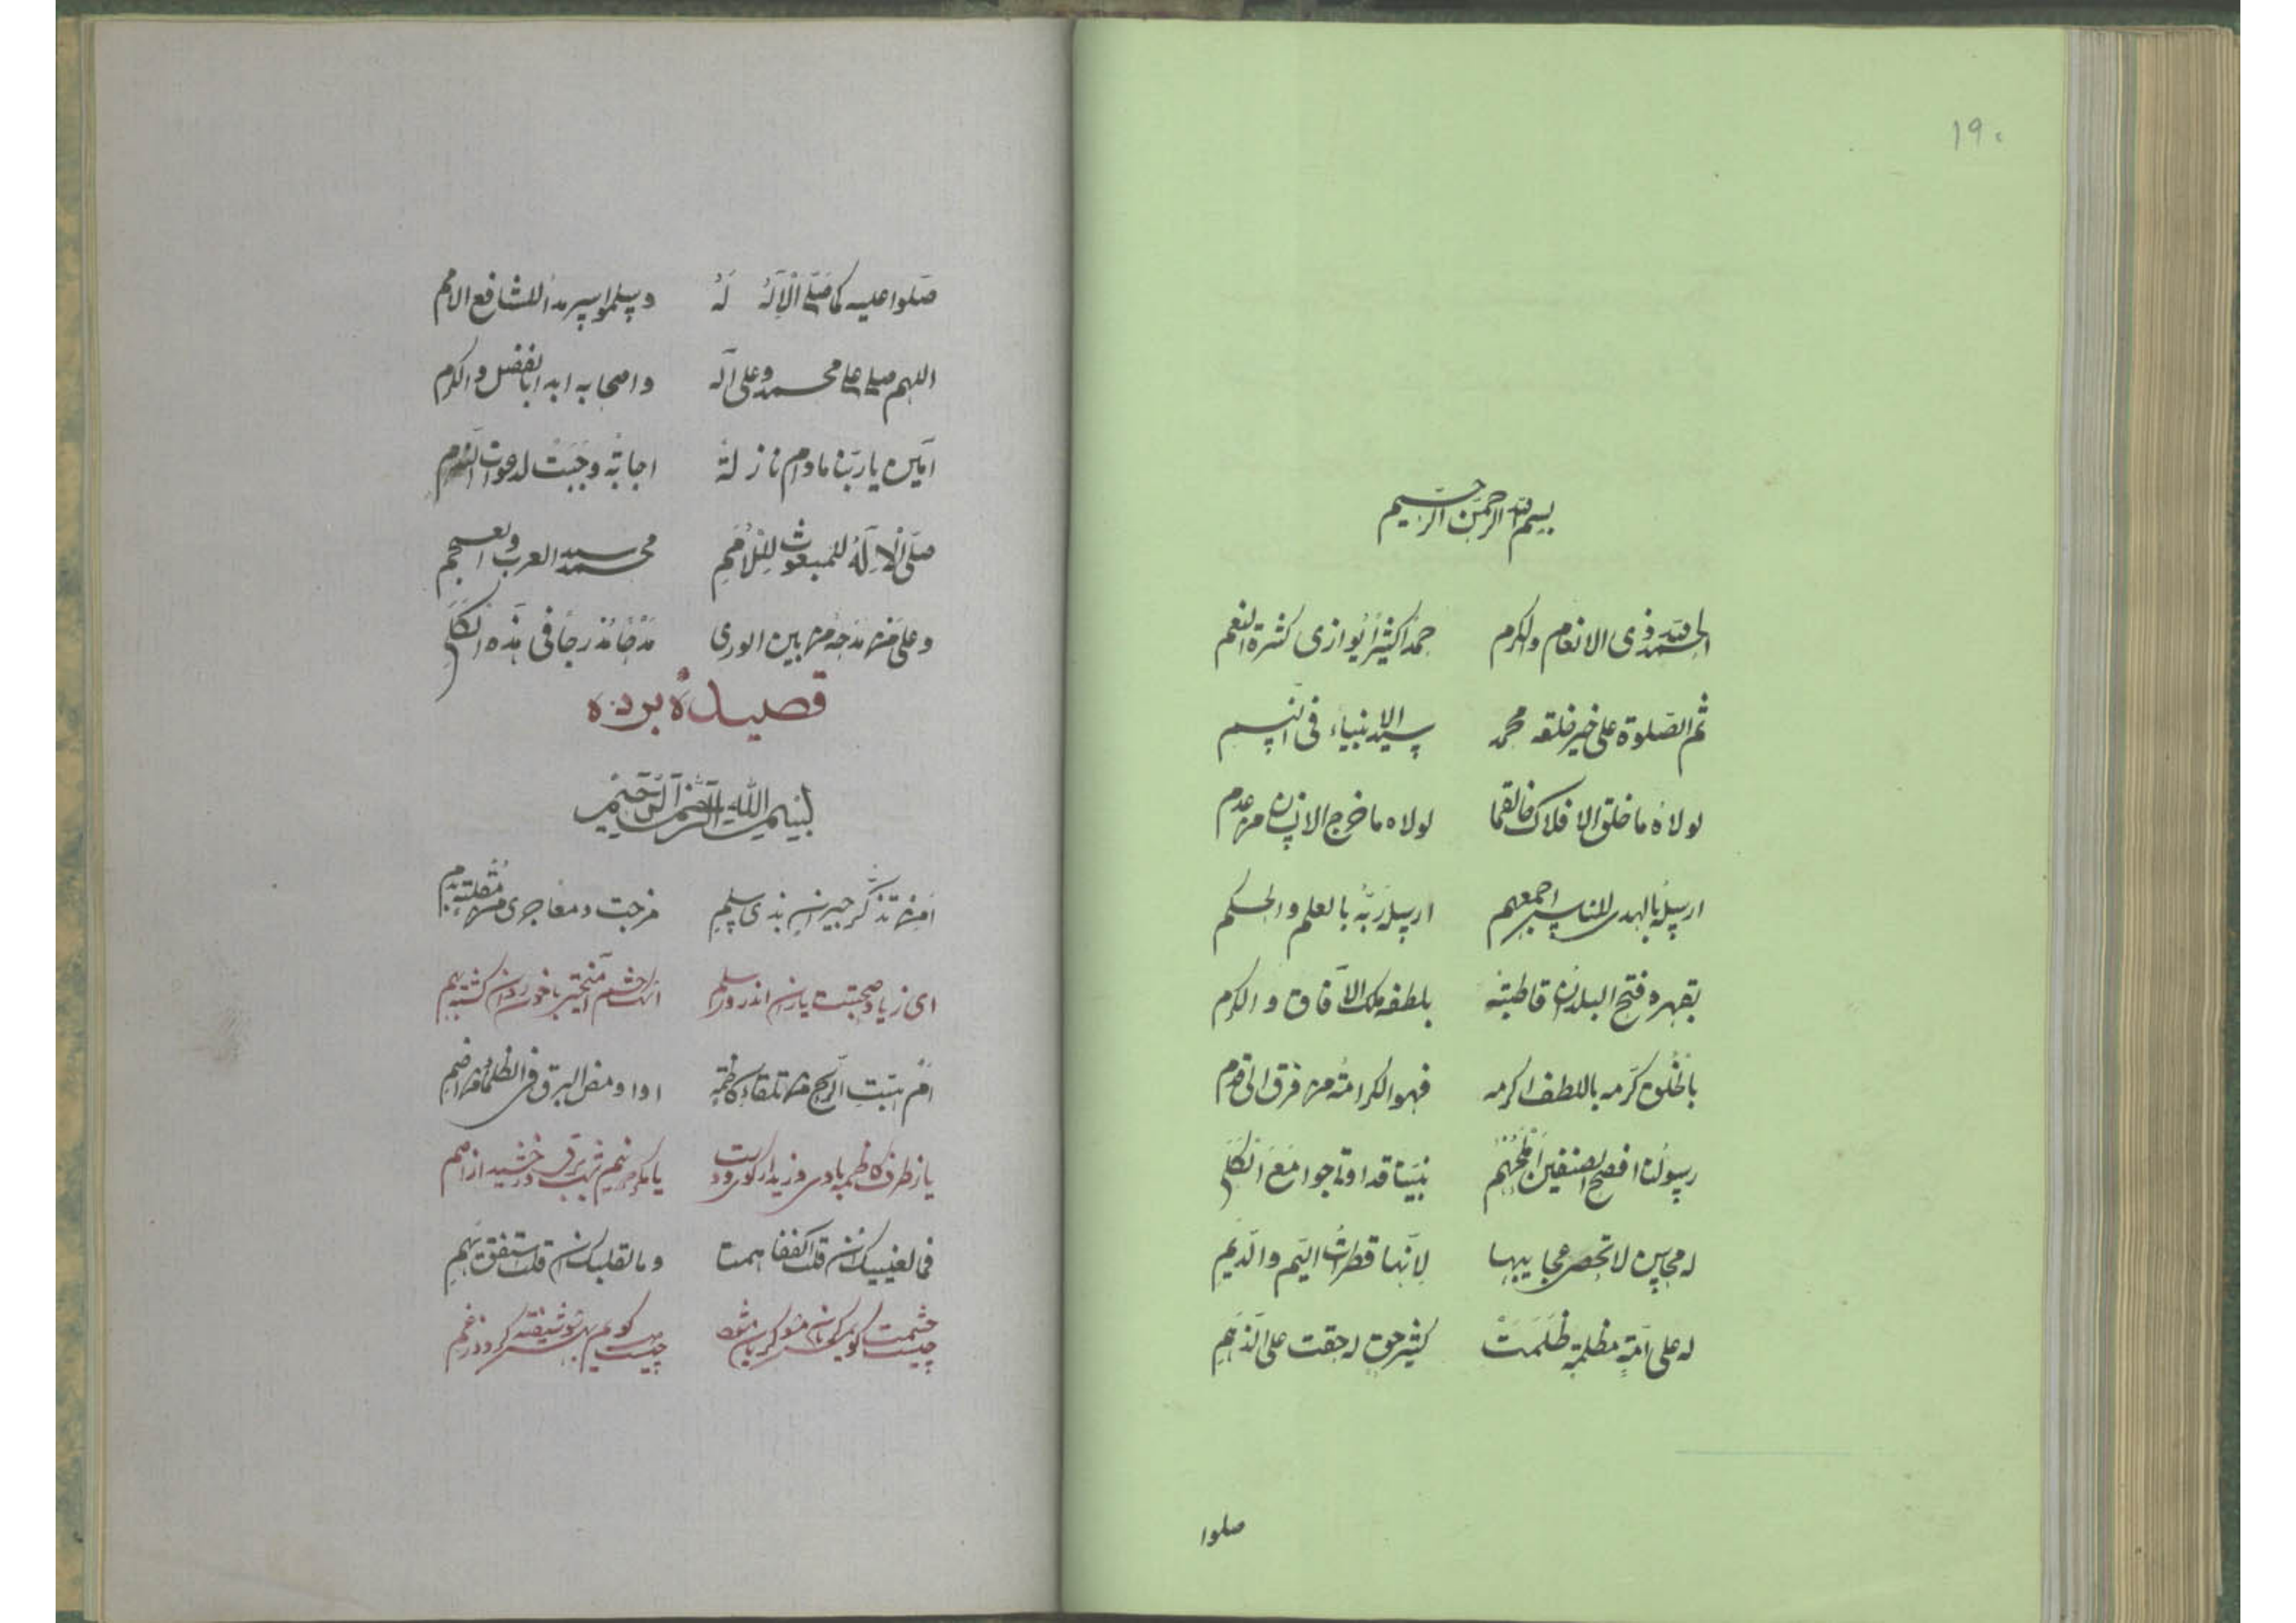 ١٩٠
بسم الله الرحمن الرحيم
الحمد لله ذی الانعام والکرم حمداً کثیراً یوازی کثرة النعم
ثم الصّلوة علی خیر خلقه محمد سید الانبیاء فی النسم
لولاه ما خلق الافلاک خالقها لولاه ما خرج الانسان من عدم
ارسله بالهدی للناس اجمعهم ارسله ربّه بالعلم والحکم
بقهره فتح البلدان قاطبة بلطفه ملک الآفاق والکرم
بالخلق کرّمه باللطف اکرمه فهو الکرامة من فرق الی قدم
رسولنا افصح لصنفین نبینا قد اوتی جوامع الکلم
له محاسن لا تحصی عجایبها لانّها قطرات الیم والدیم
له علی امّةٍ مظلمةٍ ظلمت کثیر حقٍ له حقت علی الذمم
صلوا
صلوا علیه کما صلی الاله له وسلموا سرمدا للشافع الامم
اللهم صلی علی محمد وعلی آله واصحابه ابدا بالفضل والکرم
امین یا ربنا مادام نازلة اجابة وجبت لدعوات
صلّی الاله للمبعوث للامم محمد سید العرب والعجم
وعلی من مدحه من بین الوری مدحا مندرجا فی هذه الکلم
قصیدهٔ برده
بسم الله الرحمن الرحيم
امن تذکر جیران بذی سلم مزجت دمعا جری من مقلة بدم
ای ز یاد صحبت یاران اندر ذو سلم اشک چشم آمیختی با خون روان گشته بهم
ام هبت الریح من تلقاء کاظمة او اومض البرق فی الظلماء من اضم
یا ز طرف کاظمه بادی وزید از کوی دوست یا مگر در نیم شب برقی درخشید از اضم
فما لعینیک ان قلت اکففا همتا وما لقلبک ان قلت استفق یهم
چیست چشمت کو یم مکریان شود چیست